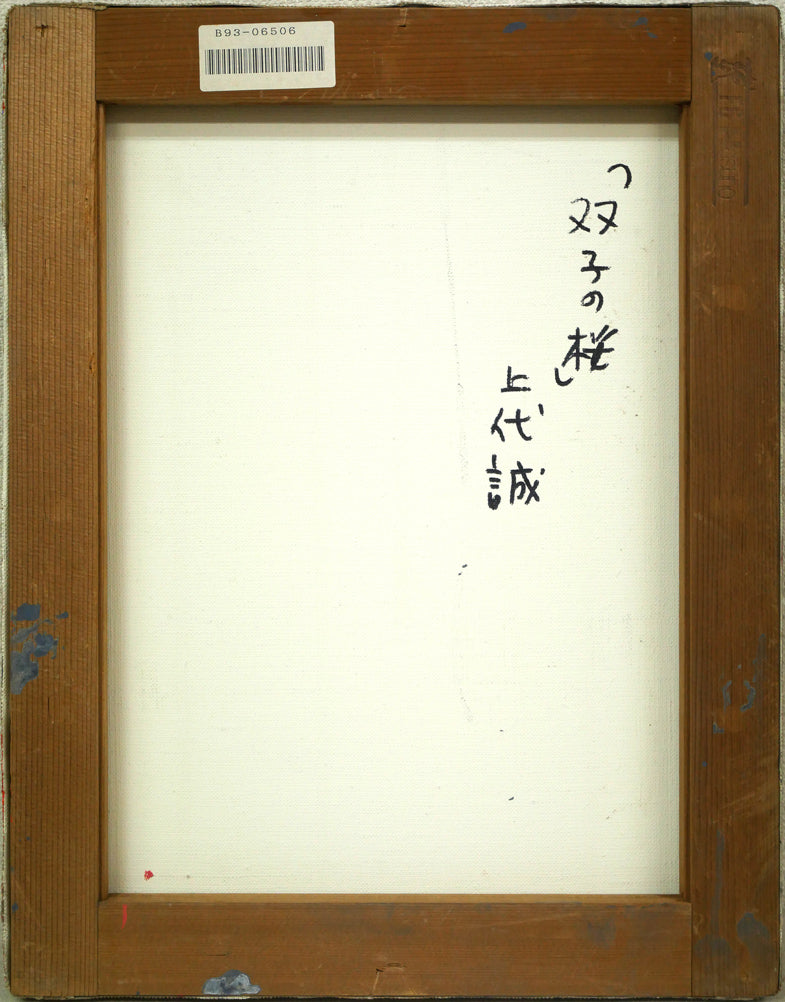 B93-06506
「双子の桜」
上代誠